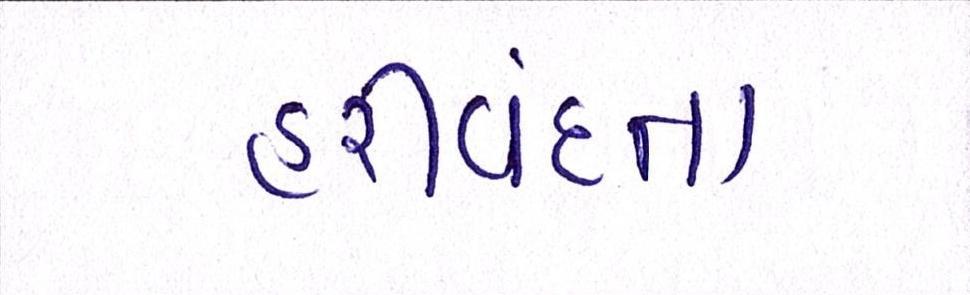 હરીવંદના